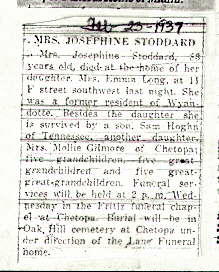 Feb 23-1937
MRS. JOSEPHINE STODDARD
Mrs. Josephine Stoddard, 88
years old, died at the home of her
daughter, Mrs. Emma Long, at 11
F street southwest last night. She
was a former resident of Wyan-
dotte. Besides the daughter she
is survived by a son, Sam Hoghn
of Tennessee, another daughter,
Mrs. Mollie Gilmore of Chetopa;
five grandchildren, five great-
grandchildren and five great-
great-grandchildren. Funeral ser-
vices will be held at 2 p. m. Wed-
nesday in the Fritz funeral chap-
el at Chetopa. Burial will be in
Oak Hill cemetery at Chetopa un-
der direction of the Lane Funeral
home.